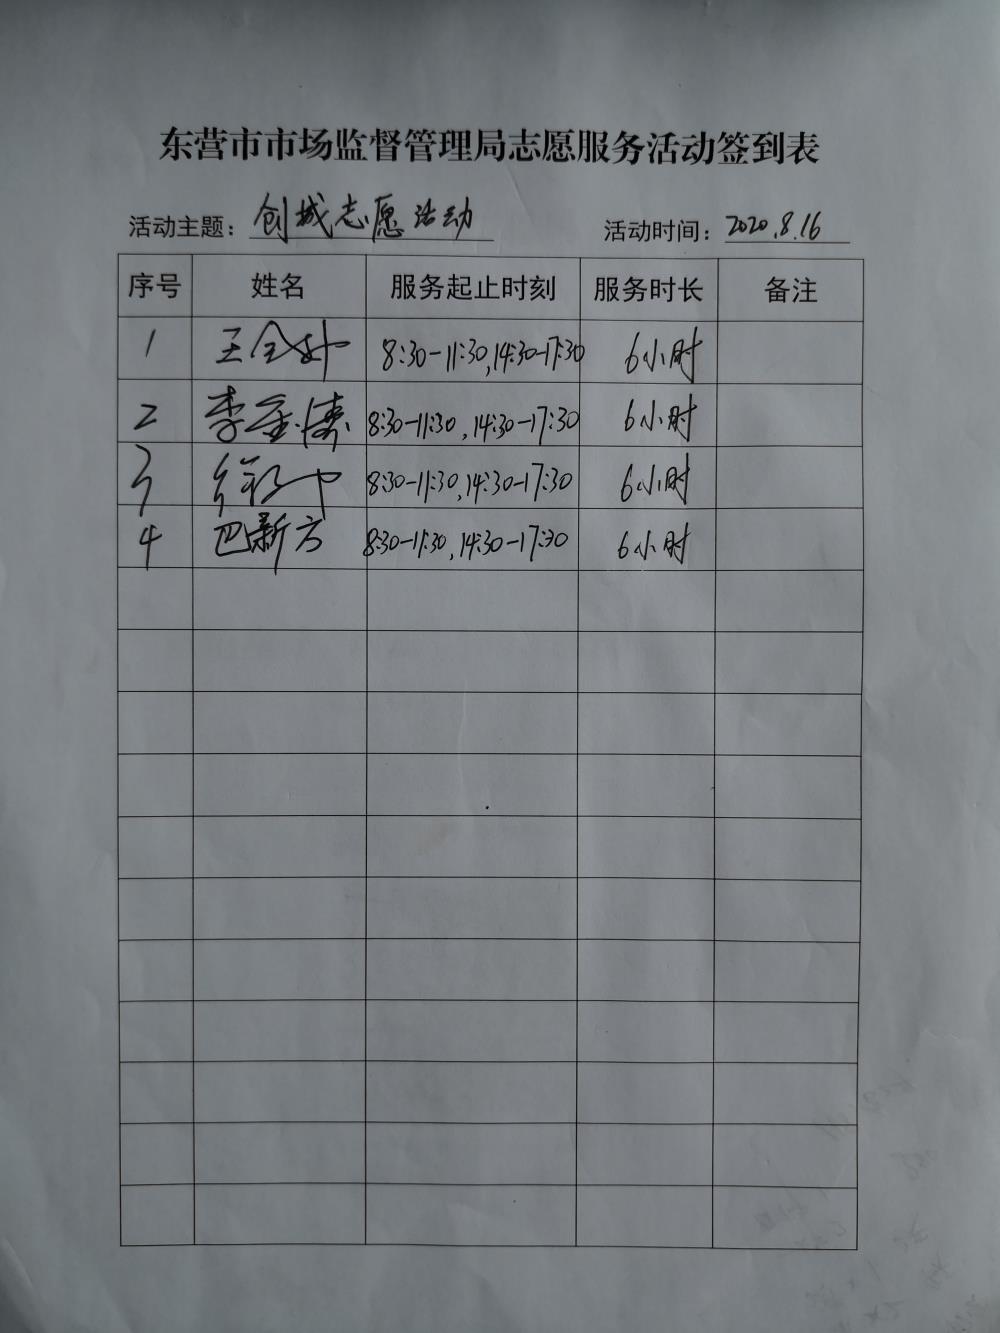 东营市市场监督管理局志愿服务活动签到表
活动主题：创城志愿活动 活动时间：2020.8.16
序号 姓名 服务起止时刻 服务时长 备注
1 王 8:30-11:30,14:30-17:30 6小时
2 李金涛 8:30-11:30,14:30-17:30 6小时
3 徐 8:30-11:30,14:30-17:30 6小时
4 巴新方 8:30-11:30,14:30-17:30 6小时